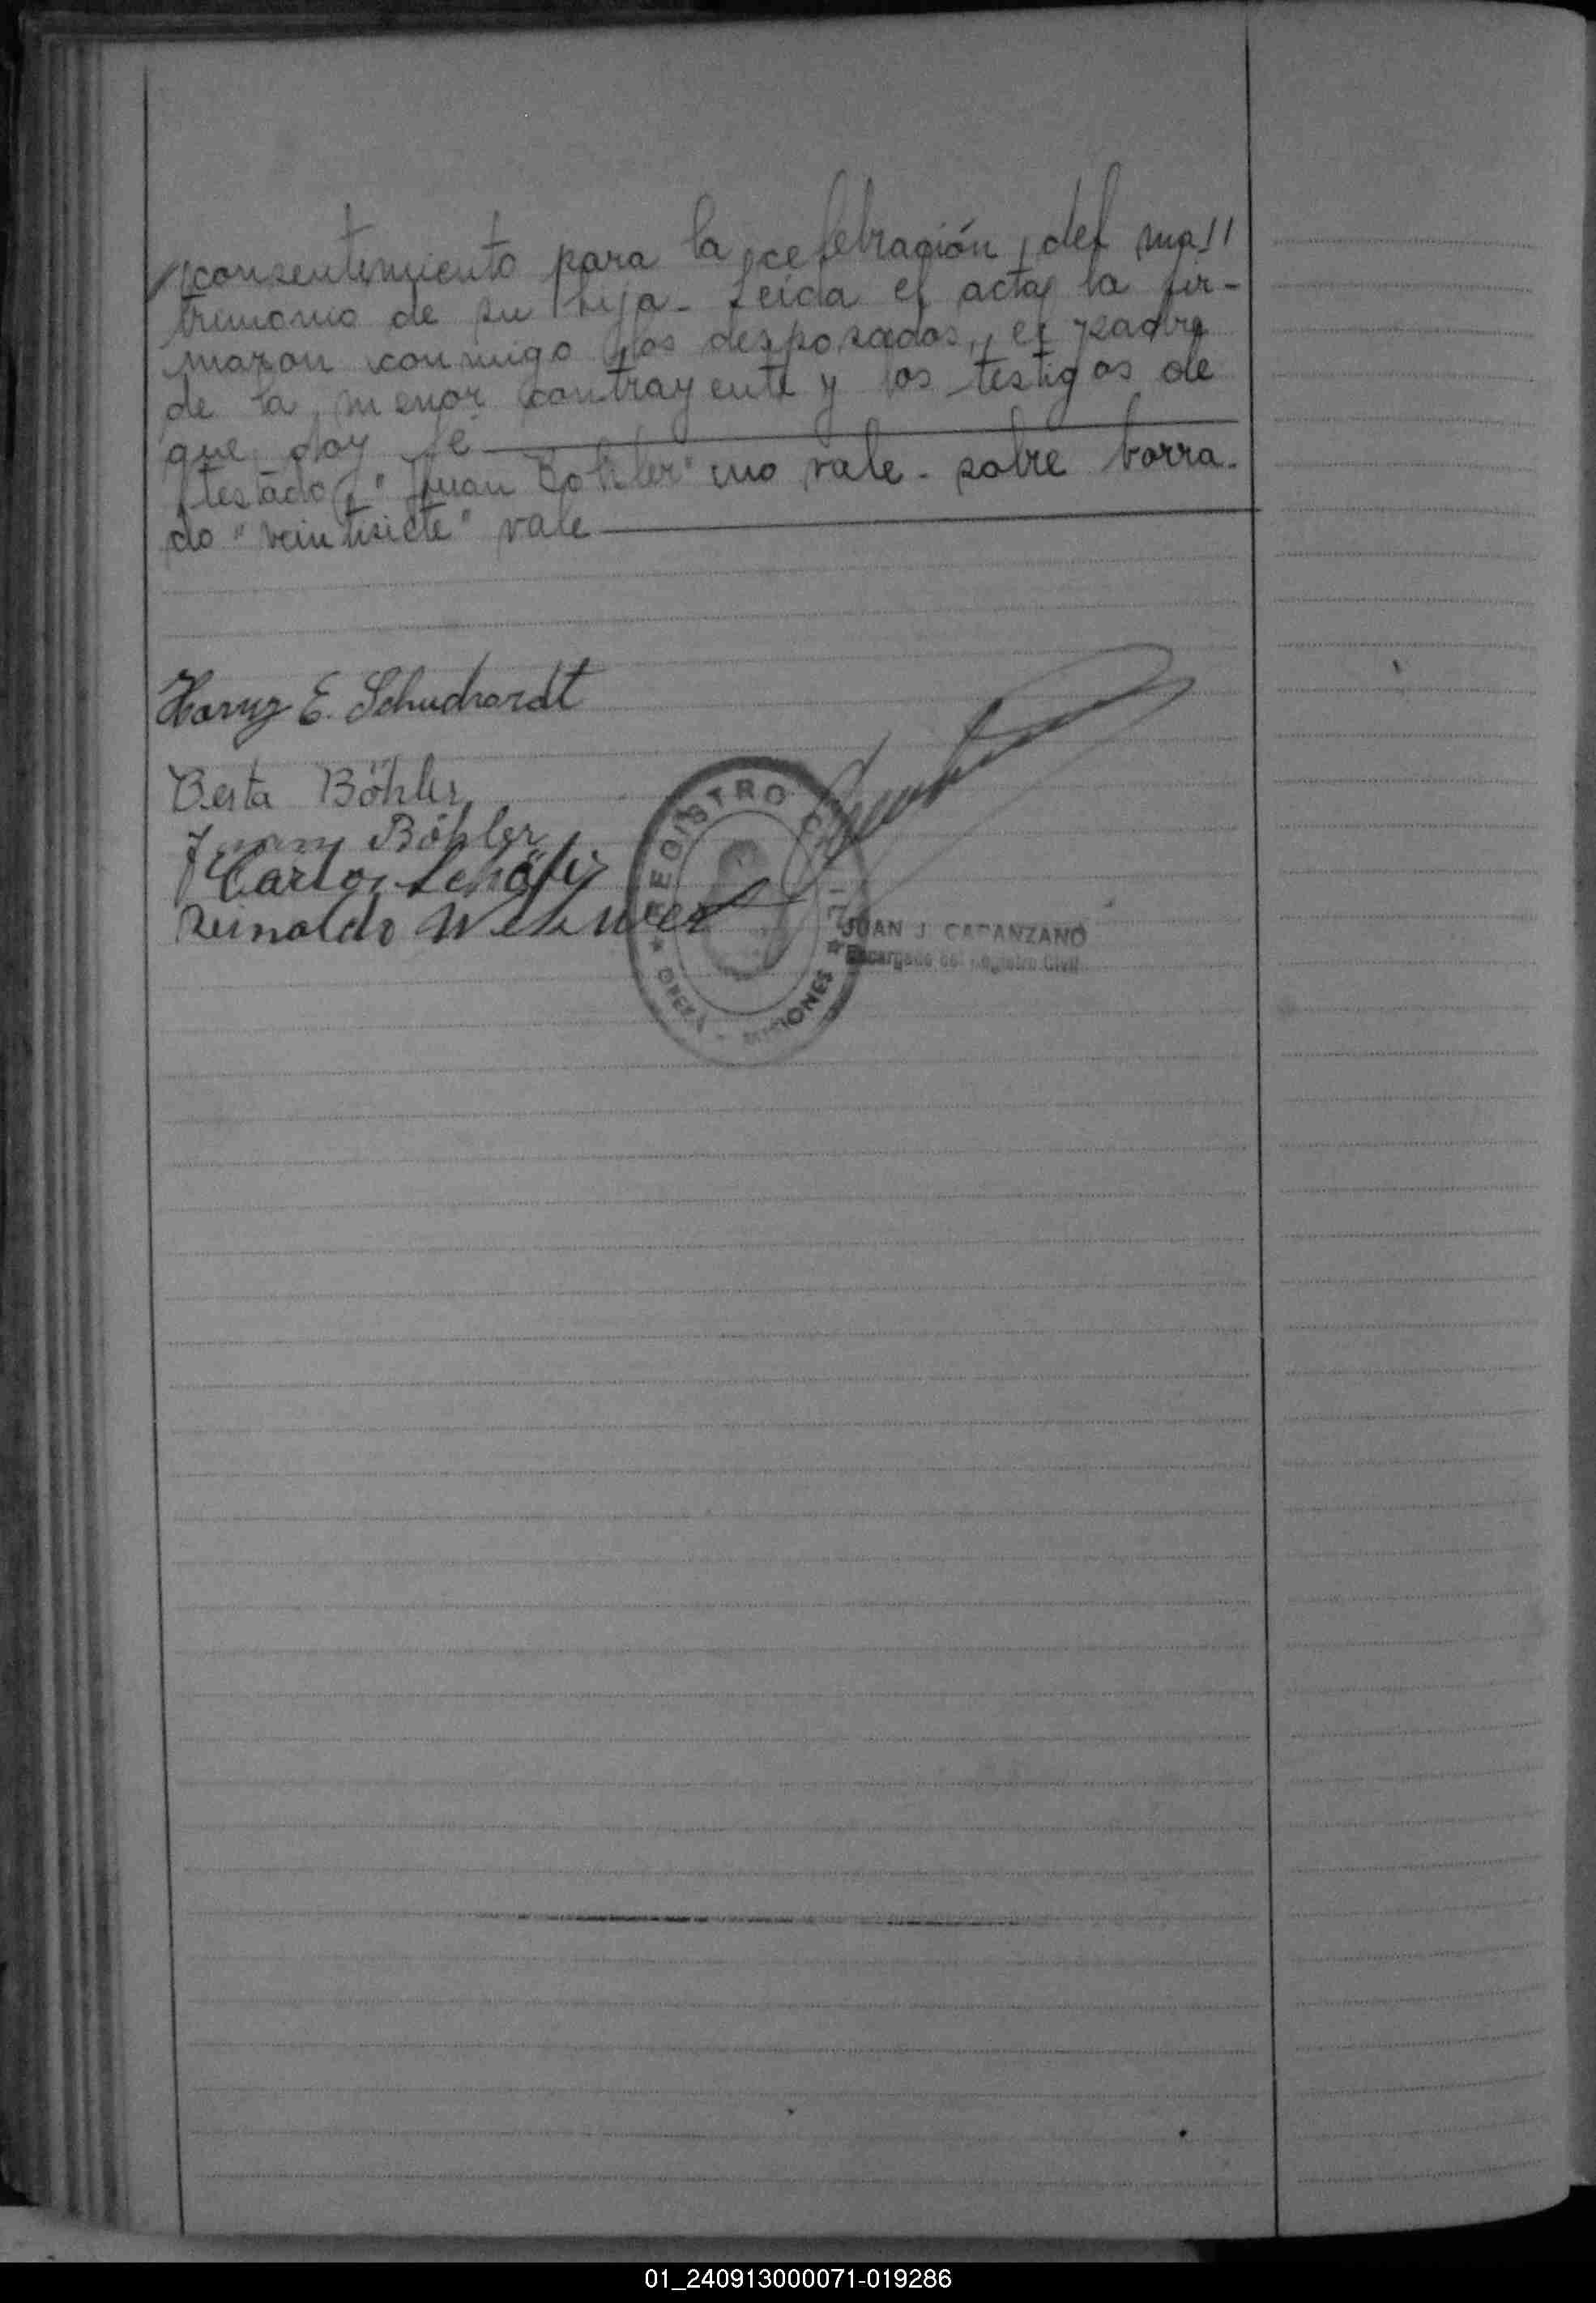 consentimiento para la celebración del ma//
trimonio de su hija - Leída el acta la fir-
maron conmigo los desposados, el padre
de la menor contrayente y los testigos de
que doy fé
testado "Juan Bohler" no vale - sobre borra-
do "veintisiete" vale
Harry E. Schuchardt
Berta Böhler
Juan Böhler
Carlos Schäfer
Reinaldo
REGISTRO CIVIL
OBERA - MISIONES
JUAN J. CATANZANO
Encargado del Registro Civil
01_240913000071-019286